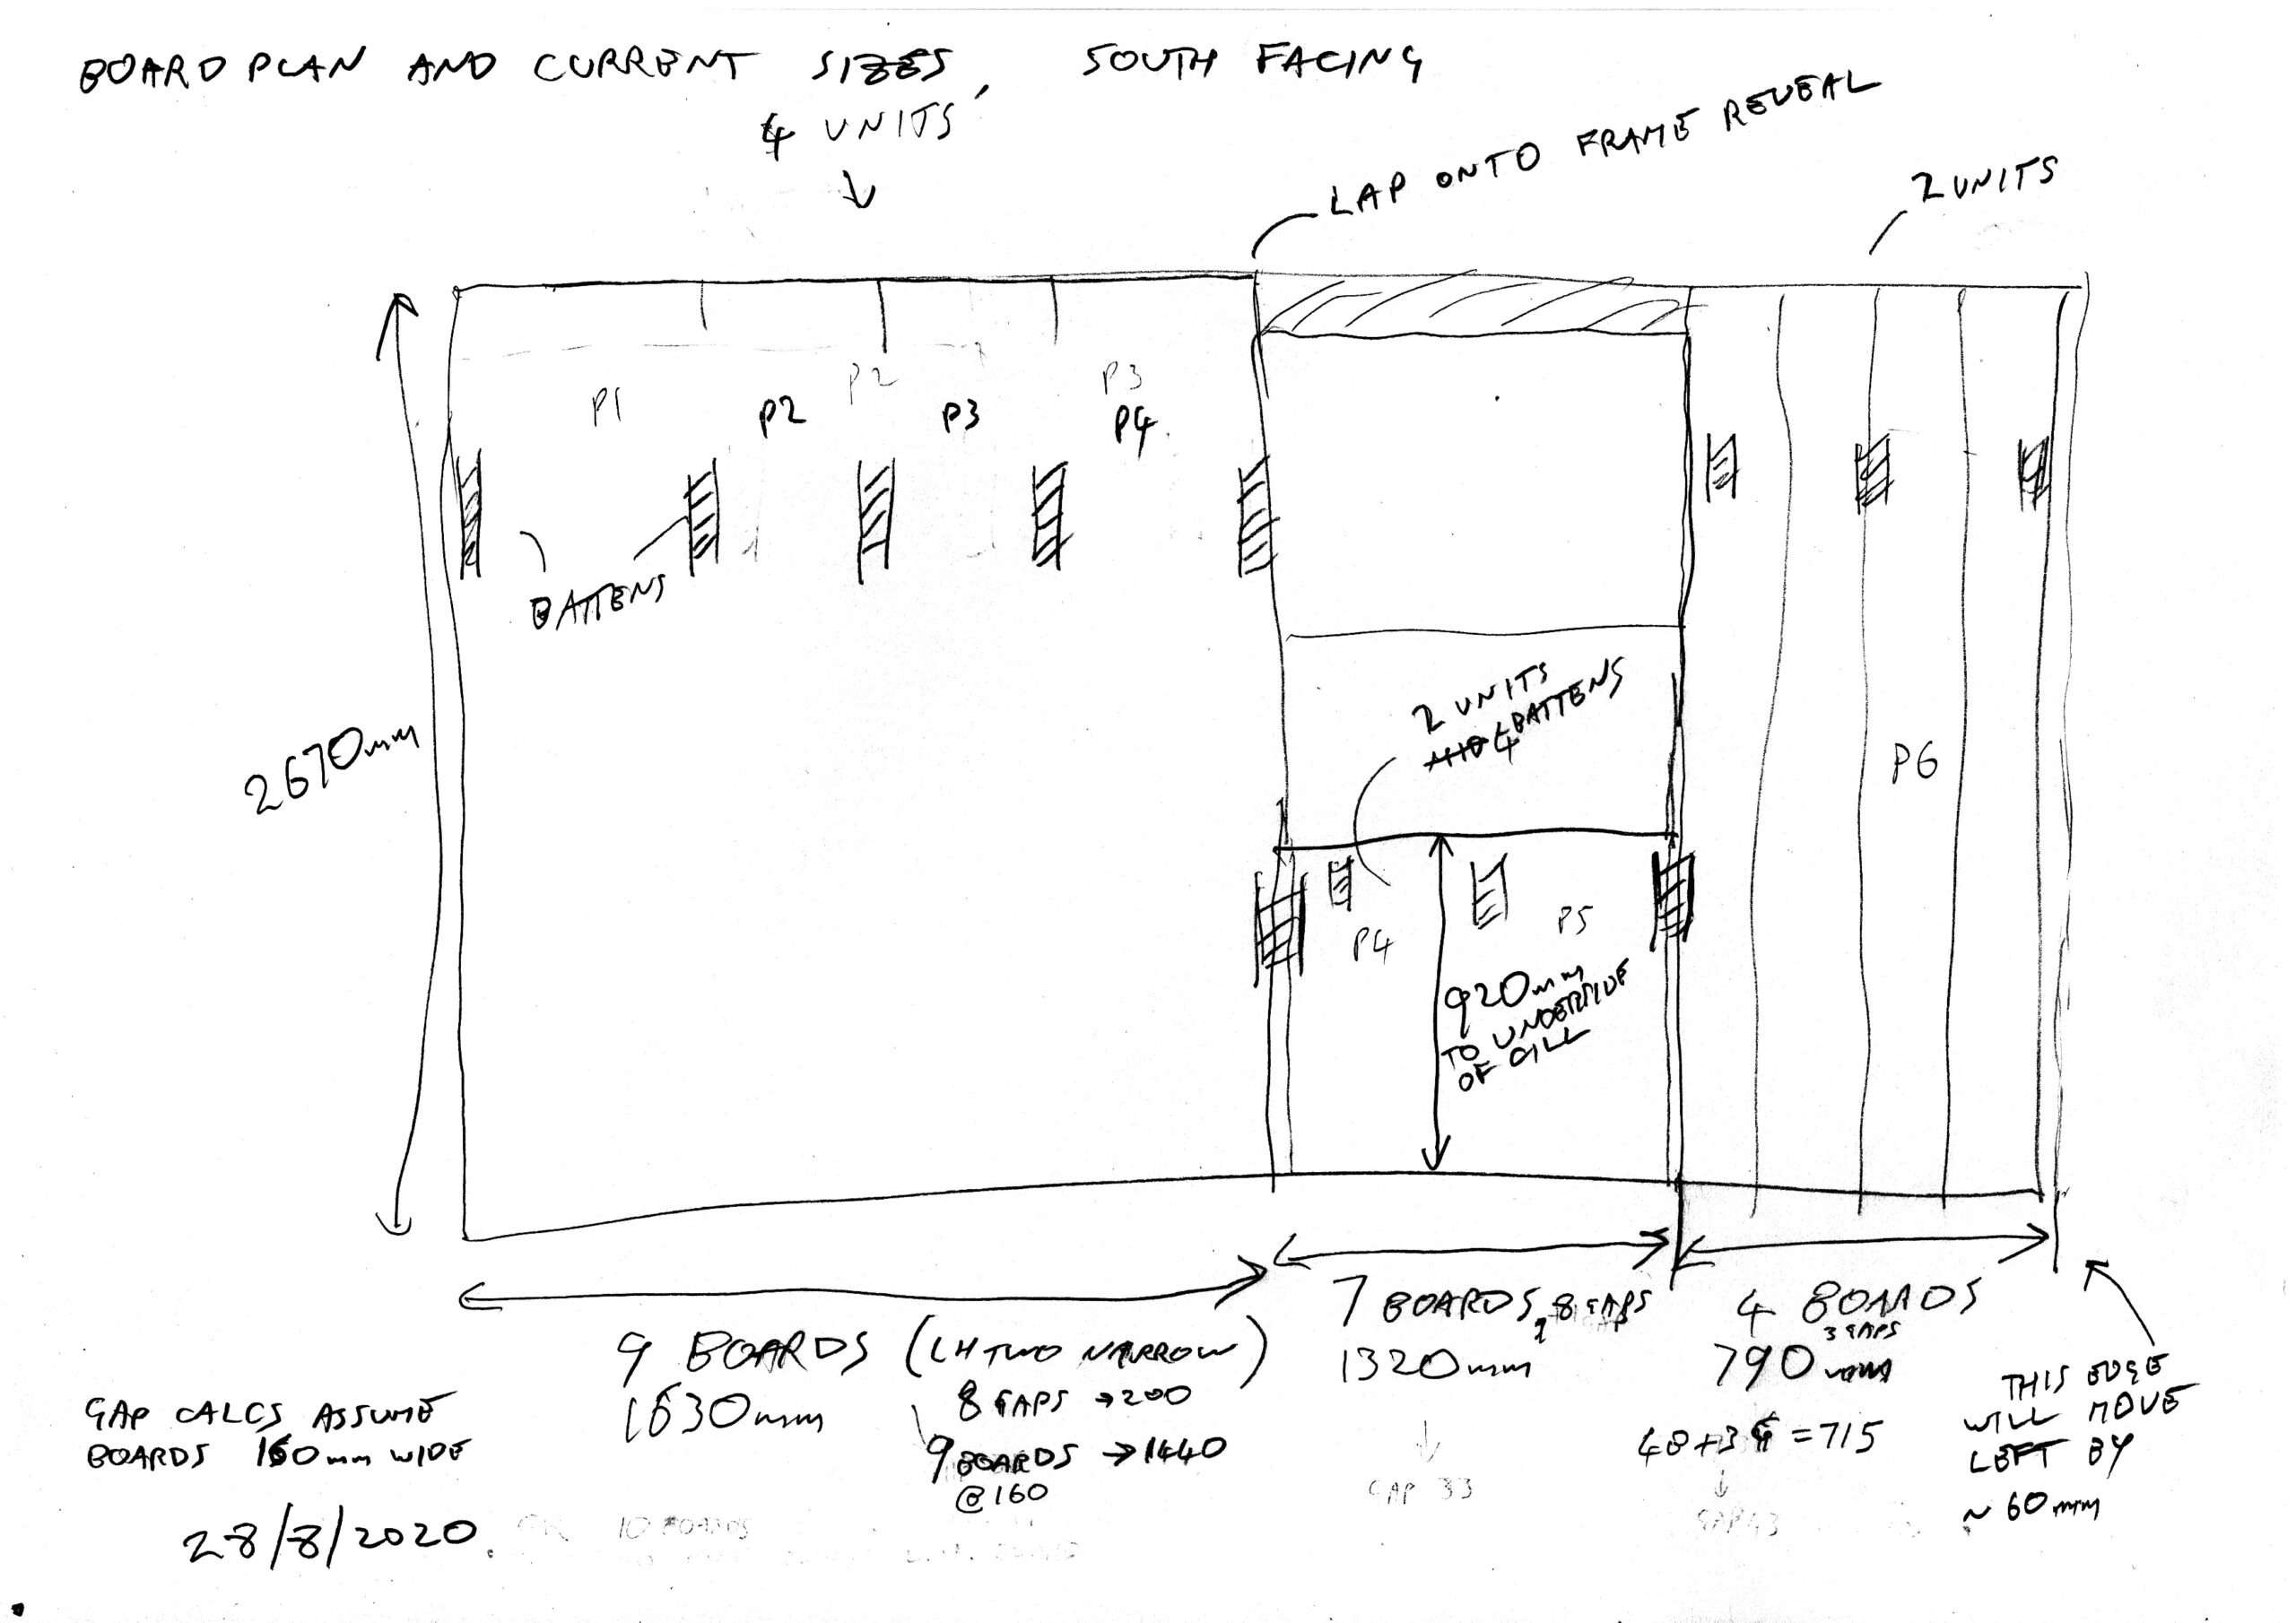 BOARD PLAN AND CURRENT SIZES, SOUTH FACING
4 UNITS
LAP ONTO FRAME REVEAL
2 UNITS
P1
P2
P2
P3
P3
P4
BATTENS
2670mm
2 UNITS
4 BATTENS
P6
P4
P5
920mm
TO UNDERSIDE
OF CILL
9 BOARDS (LH TWO NARROW)
1630mm
8 GAPS → 200
9 BOARDS → 1440
@ 160
7 BOARDS, 8 GAPS
1320mm
GAP 33
4 BOARDS
3 GAPS
790mm
4B + 3G = 715
GAP 43
THIS EDGE
WILL MOVE
LEFT BY
~ 60mm
GAP CALCS ASSUME
BOARDS 160mm WIDE
28/8/2020.
10 BOARDS